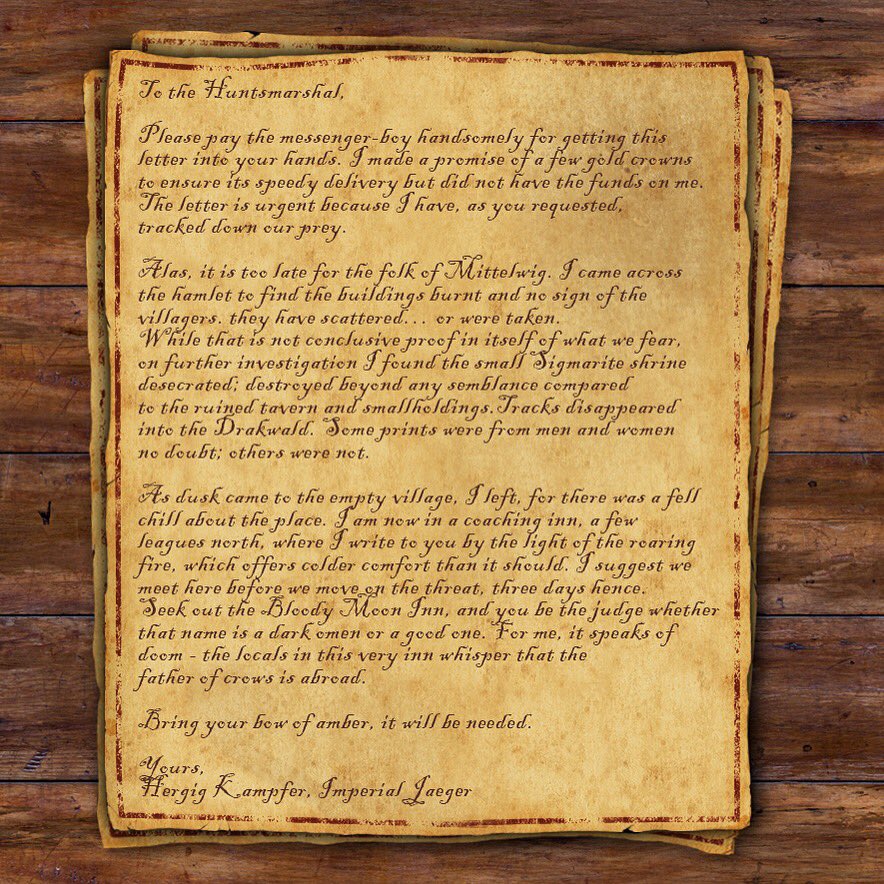 To the Huntsmarshal,
Please pay the messenger-boy handsomely for getting this
letter into your hands. I made a promise of a few gold crowns
to ensure its speedy delivery but did not have the funds on me.
The letter is urgent because I have, as you requested,
tracked down our prey.
Alas, it is too late for the folk of Mittelwig. I came across
the hamlet to find the buildings burnt and no sign of the
villagers. they have scattered... or were taken.
While that is not conclusive proof in itself of what we fear,
on further investigation I found the small Sigmarite shrine
desecrated; destroyed beyond any semblance compared
to the ruined tavern and smallholdings.Tracks disappeared
into the Drakwald. Some prints were from men and women
no doubt; others were not.
As dusk came to the empty village, I left, for there was a fell
chill about the place. I am now in a coaching inn, a few
leagues north, where I write to you by the light of the roaring
fire, which offers colder comfort than it should. I suggest we
meet here before we move on the threat, three days hence.
Seek out the Bloody Moon Inn, and you be the judge whether
that name is a dark omen or a good one. For me, it speaks of
doom - the locals in this very inn whisper that the
father of crows is abroad.
Bring your bow of amber, it will be needed.
Yours,
Hergig Kampfer, Imperial Jaeger